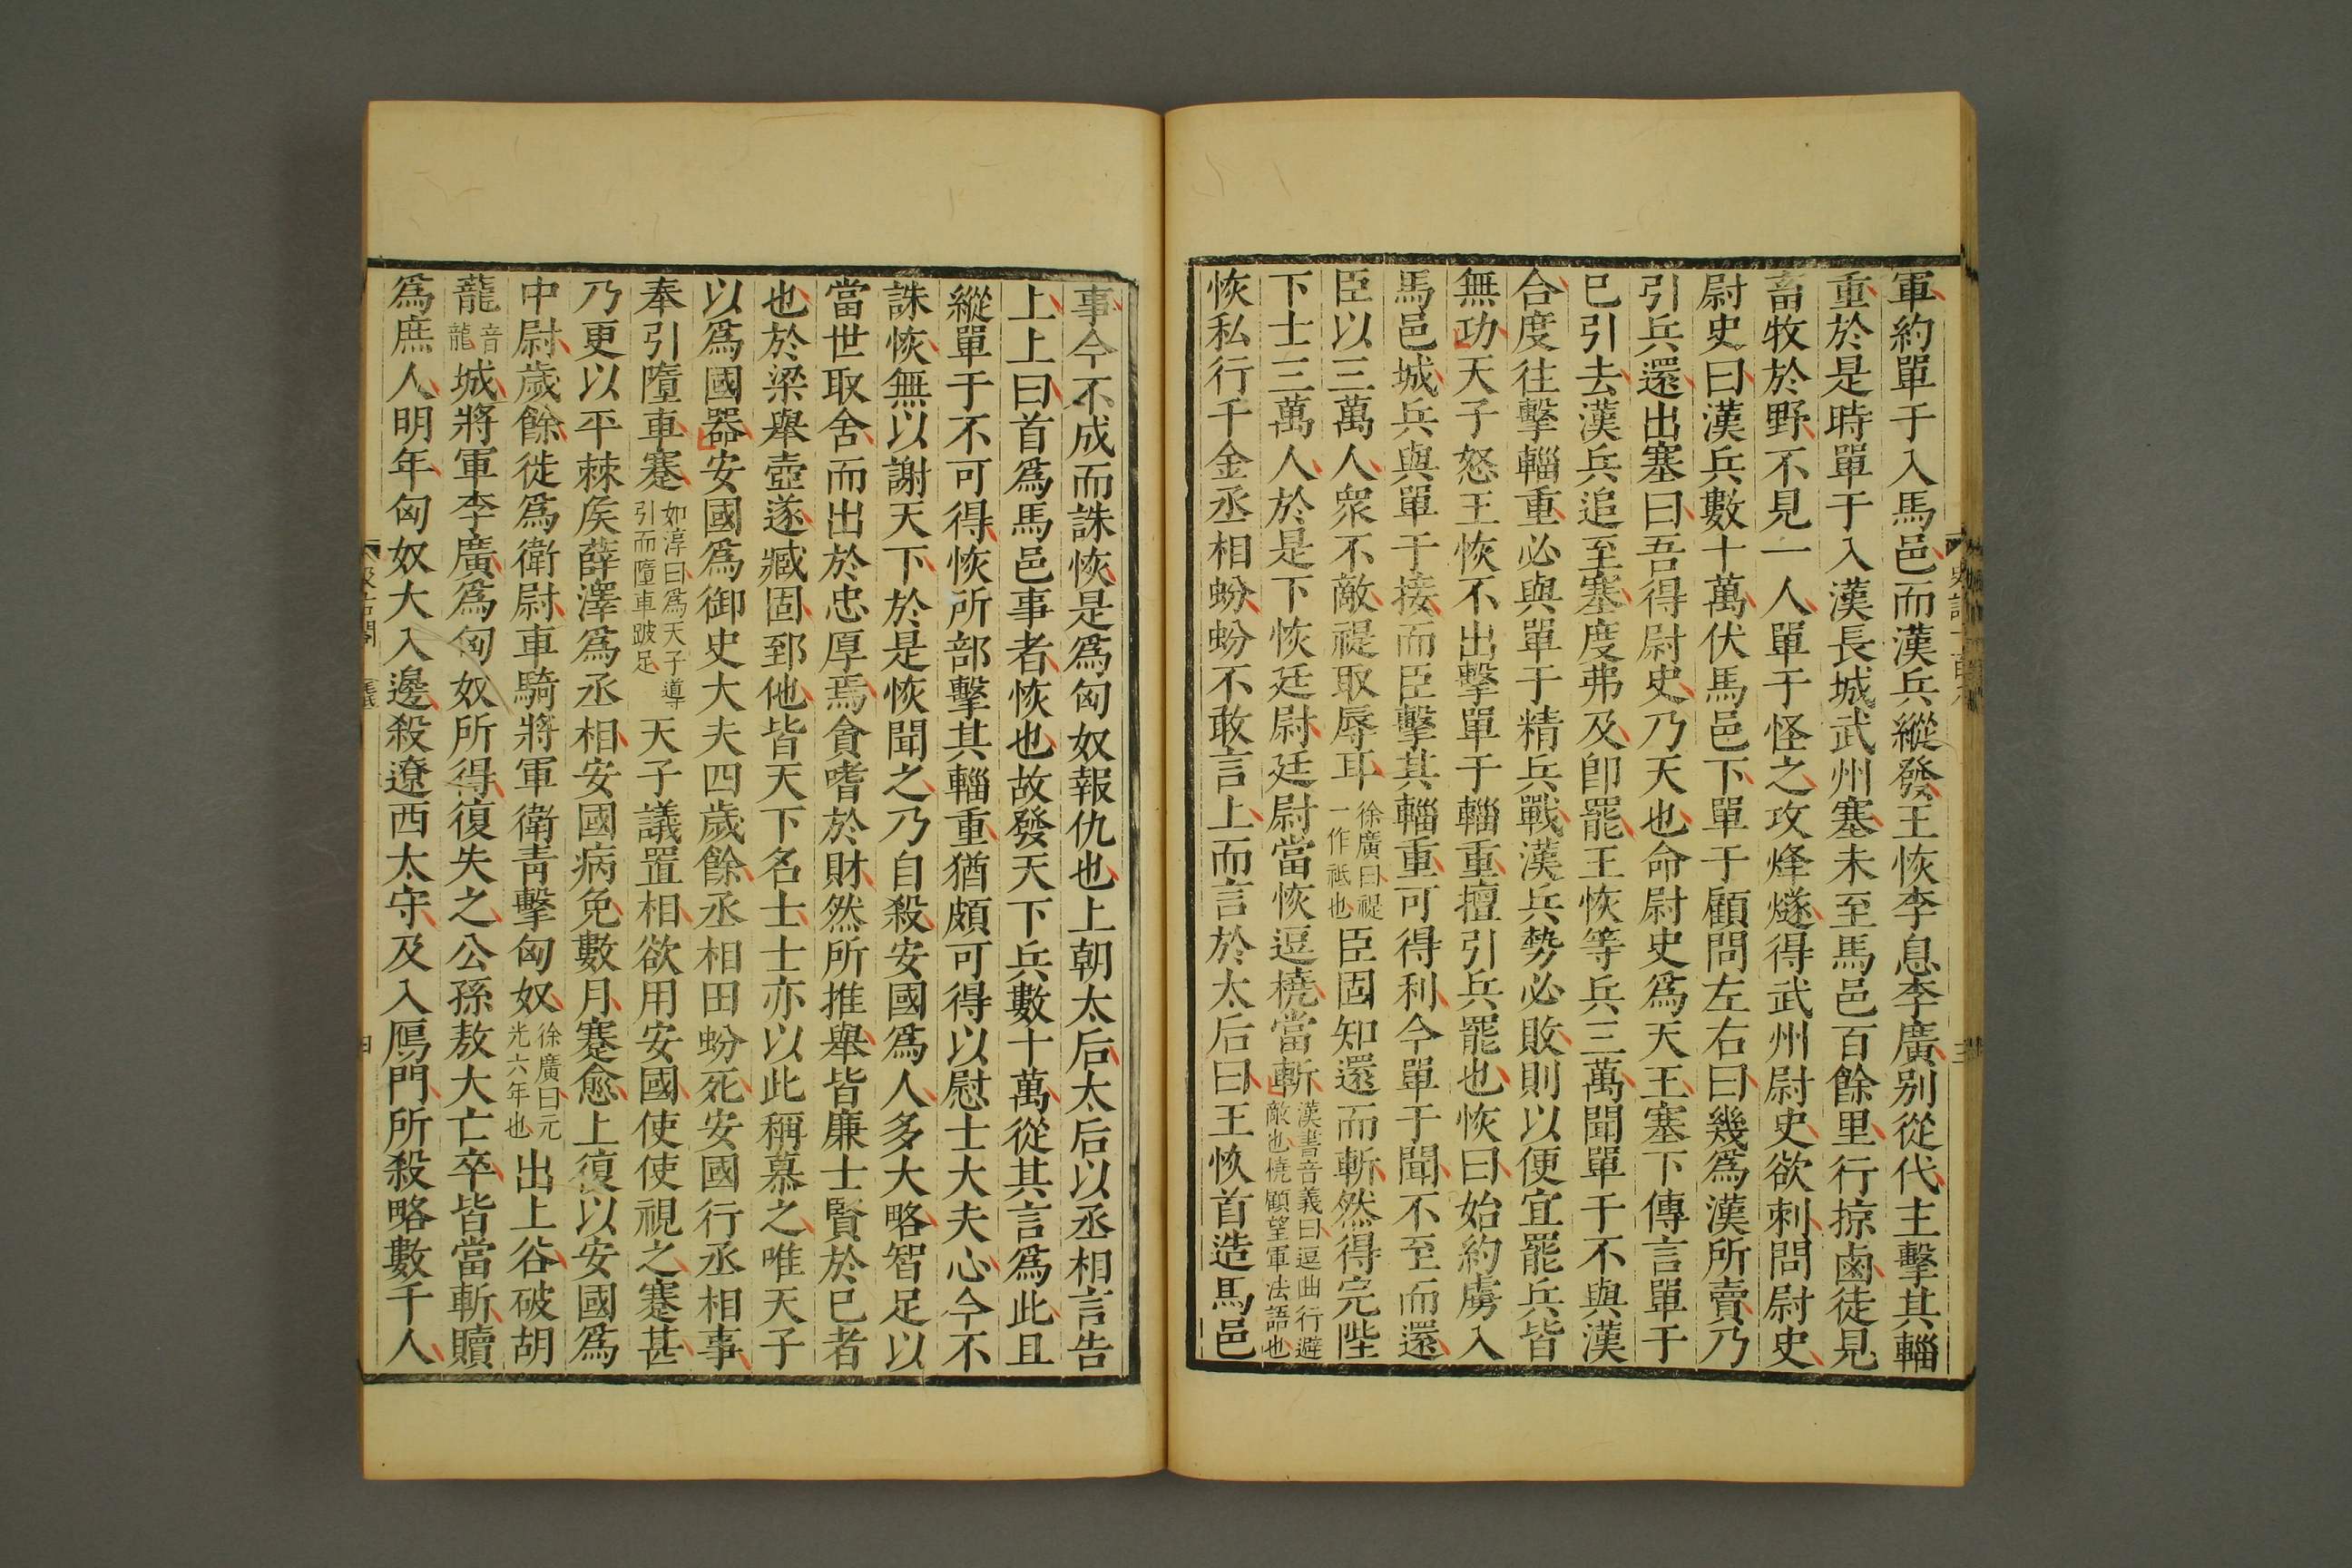 軍約單于入馬邑而漢兵縱發王恢李息李廣别從代主擊其輜
重於是時單于入漢長城武州塞未至馬邑百餘里行掠鹵徒見
畜牧於野不見一人單于怪之攻烽燧得武州尉史欲刺問尉史
尉史曰漢兵數十萬伏馬邑下單于顧問左右曰幾爲漢所賣乃
引兵還出塞曰吾得尉史乃天也命尉史爲天王塞下傳言單于
已引去漢兵追至塞度弗及卽罷王恢等兵三萬聞單于不與漢
合度往擊輜重必與單于精兵戰漢兵勢必敗則以便宜罷兵皆
無功天子怒王恢不出擊單于輜重擅引兵罷也恢曰始約虜入
馬邑城兵與單于接而臣擊其輜重可得利今單于聞不至而還
臣以三萬人衆不敵禔取辱耳徐廣曰禔一作祗也臣固知還而斬然得完陛
下士三萬人於是下恢廷尉廷尉當恢逗橈當斬漢書音義曰逗曲行避敵也橈顧望軍法語也
恢私行千金丞相蚡蚡不敢言上而言於太后曰王恢首造馬邑
事今不成而誅恢是爲匈奴報仇也上朝太后太后以丞相言告
上上曰首爲馬邑事者恢也故發天下兵數十萬從其言爲此且
縱單于不可得恢所部擊其輜重猶頗可得以慰士大夫心今不
誅恢無以謝天下於是恢聞之乃自殺安國爲人多大略智足以
當世取舍而出於忠厚焉貪嗜於財然所推舉皆廉士賢於已者
也於梁舉壺遂臧固郅他皆天下名士士亦以此稱慕之唯天子
以爲國器安國爲御史大夫四歲餘丞相田蚡死安國行丞相事
奉引墮車蹇如淳曰爲天子導引而墮車跛足天子議置相欲用安國使使視之蹇甚
乃更以平棘矦薛澤爲丞相安國病免數月蹇愈上復以安國爲
中尉歲餘徙爲衛尉車騎將軍衛靑擊匈奴徐廣曰元光六年也出上谷破胡
龍音龍城將軍李廣爲匈奴所得復失之公孫敖大亡卒皆當斬贖
爲庶人明年匈奴大入邊殺遼西太守及入鴈門所殺略數千人